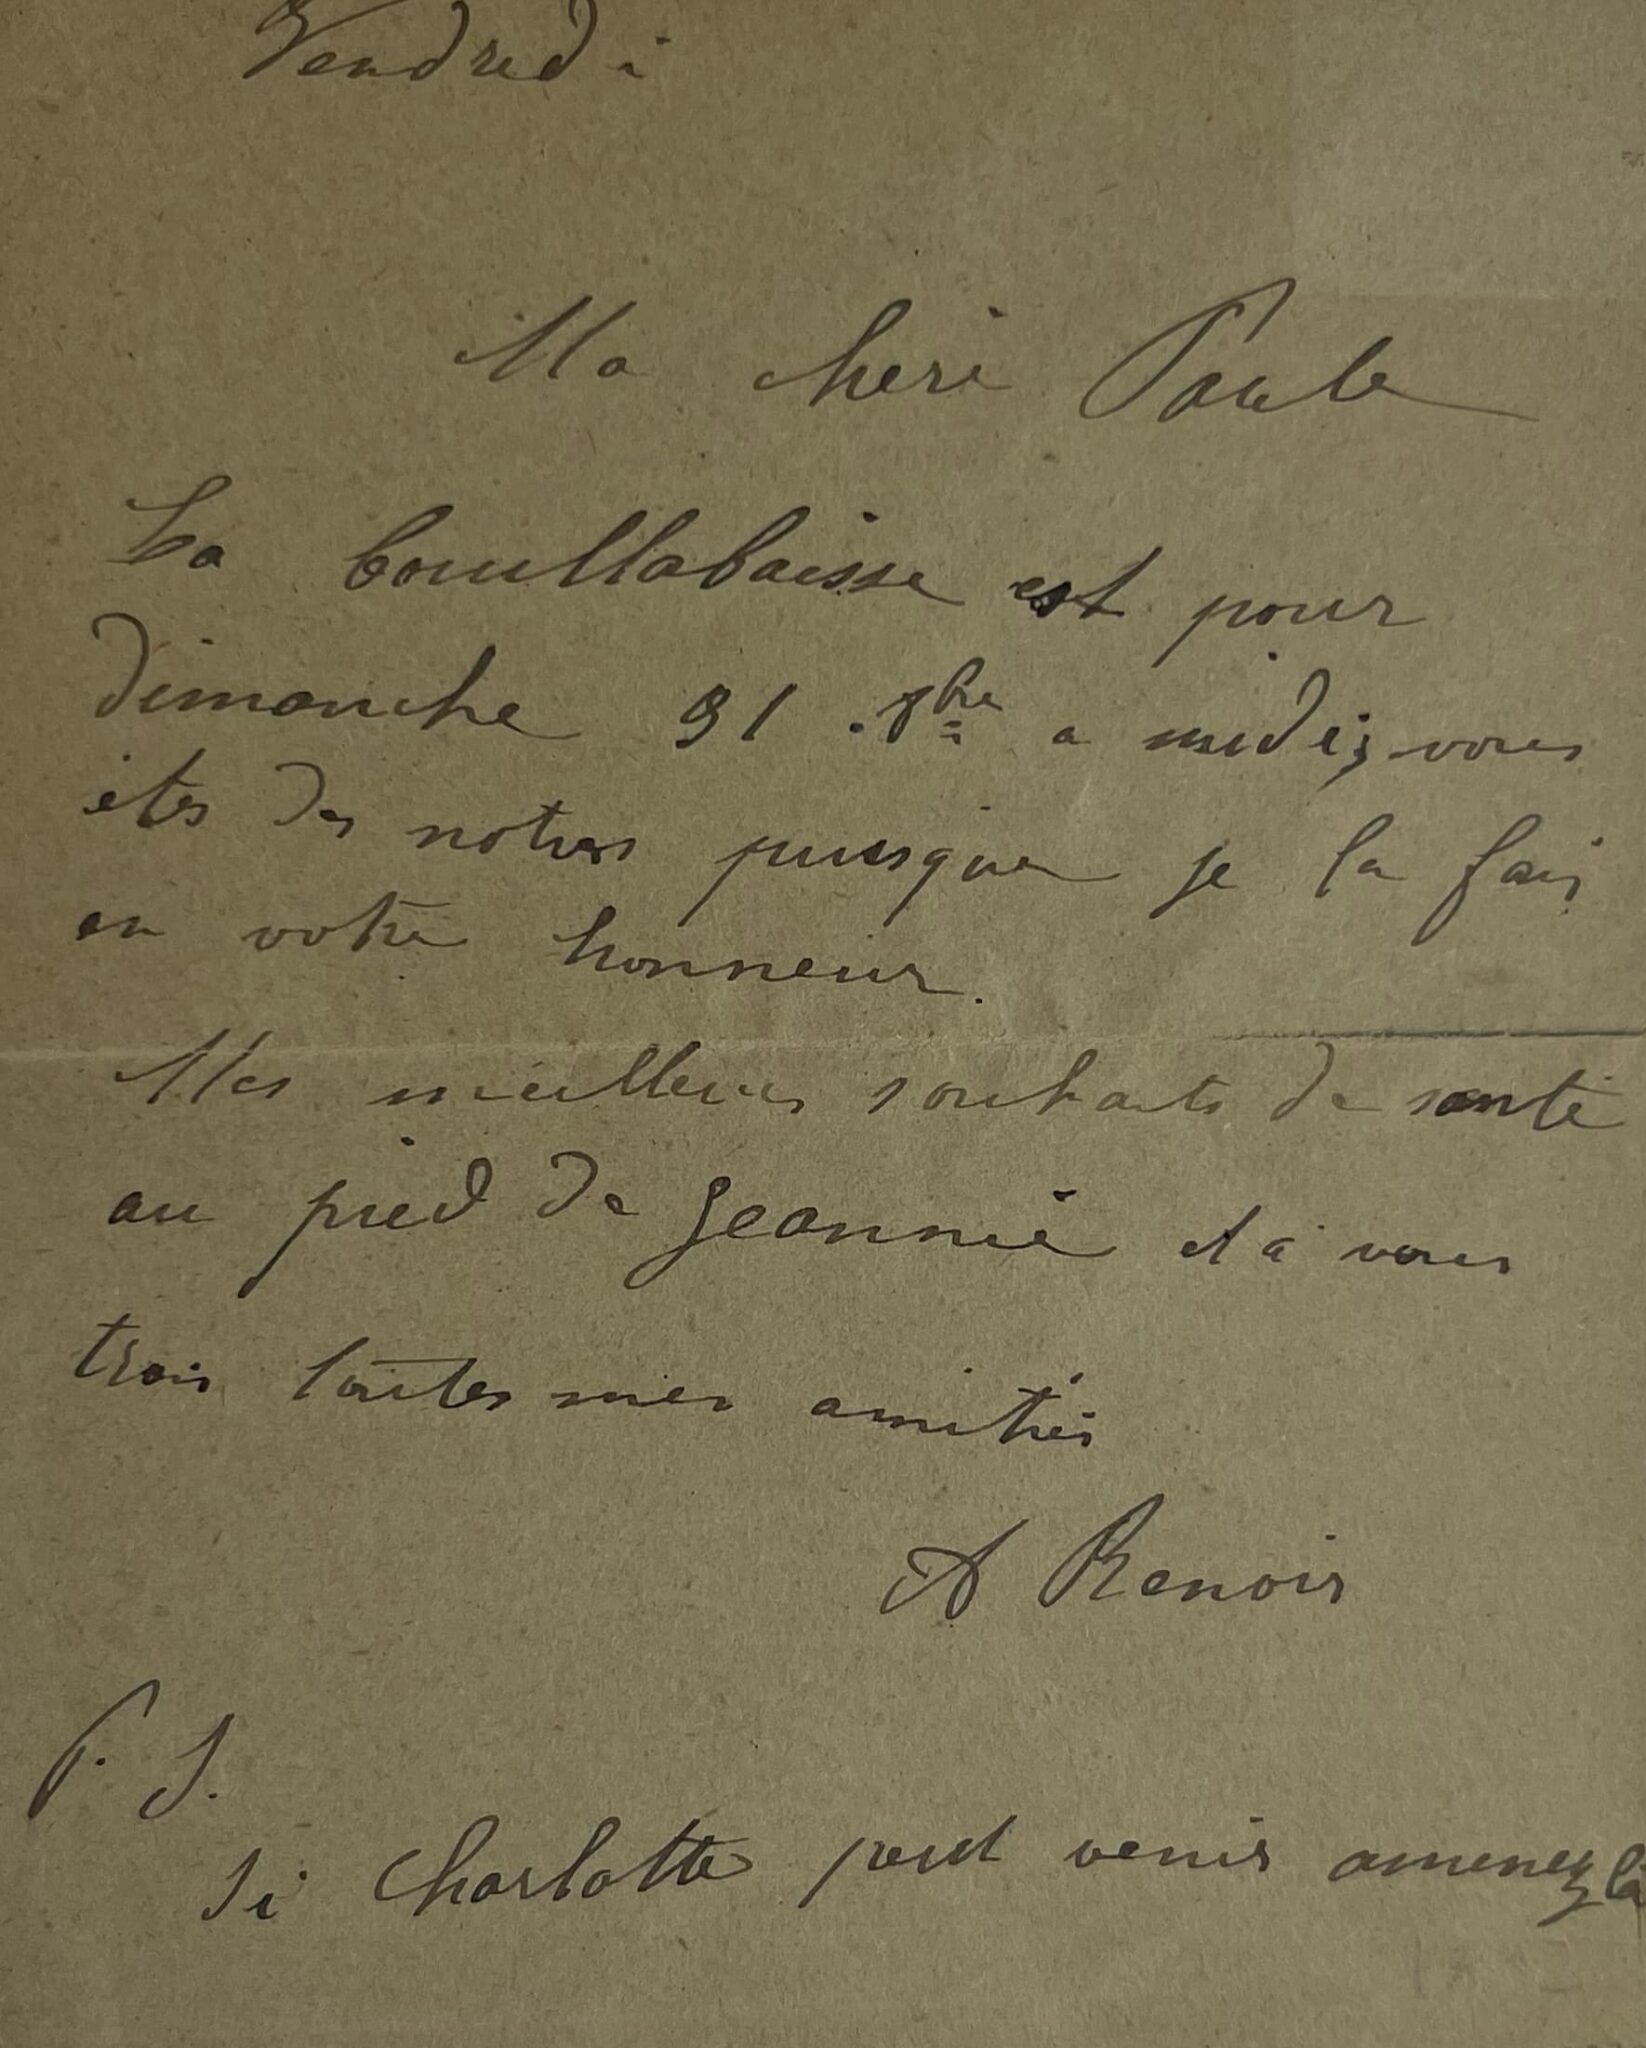 Vendredi
Ma cheri Paule
La bouillabaisse est pour
dimanche 31 8bre a midi, vous
êtes des notres puisque je la fais
en votre honneur.
Mes meilleurs souhaits de santé
au pied de Jeannie et à vous
trois toutes mes amitiés
A Renoir
P. S.
Si Charlotte peut venir amenez la